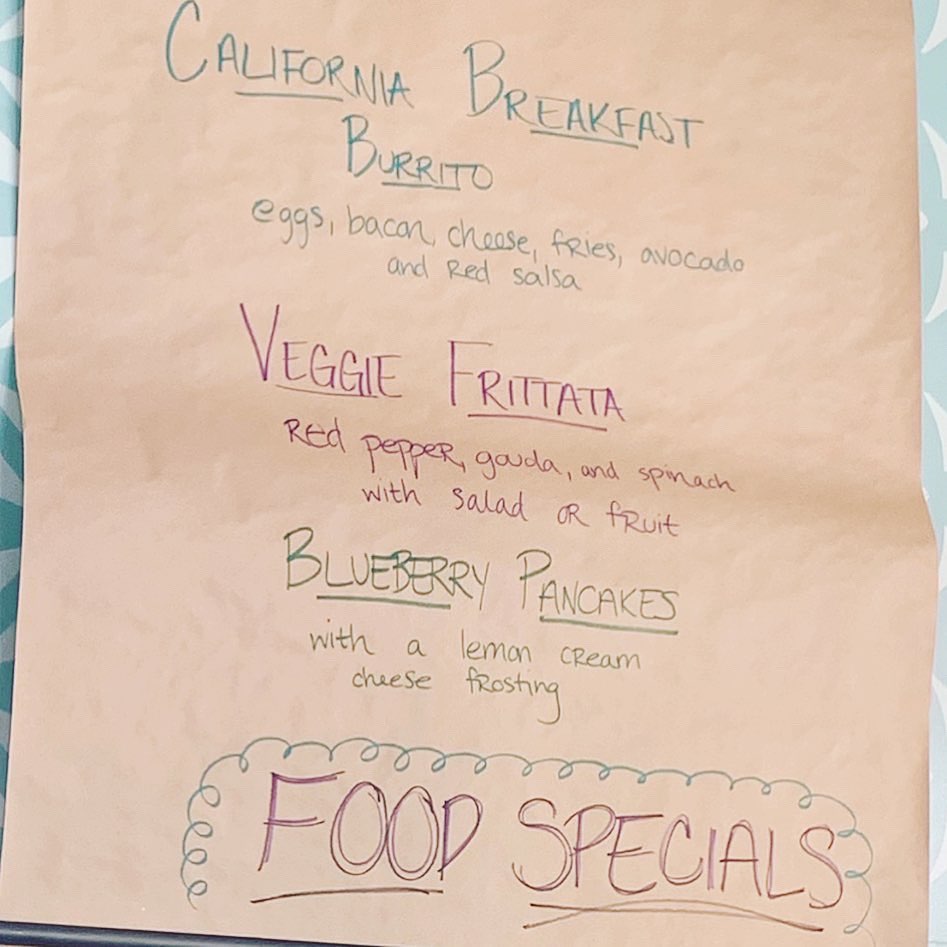 CALIFORNIA BREAKFAST
BURRITO
eggs, bacon, cheese, fries, avocado
and Red salsa
VEGGIE FRITTATA
Red pepper, gouda, and spinach
with salad or fruit
BLUEBERRY PANCAKES
with a lemon cream
cheese frosting
FOOD SPECIALS